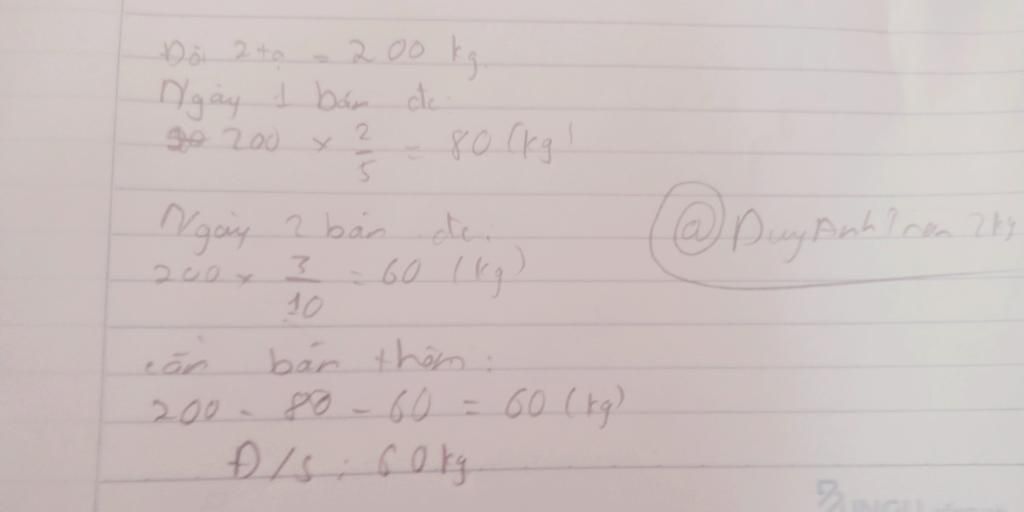 Đổi 2 tạ = 200 kg.
Ngày 1 bán đc:
200 × 2/5 = 80 (kg)
Ngày 2 bán đc:
200 × 3/10 = 60 (kg)
@DuyAnh 2k9
cần bán thêm:
200 - 80 - 60 = 60 (kg)
Đ/s: 60kg